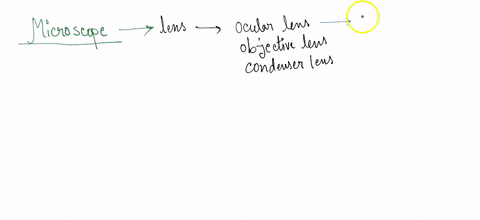 Microscope → lens → ocular lens →
objective lens
condenser lens